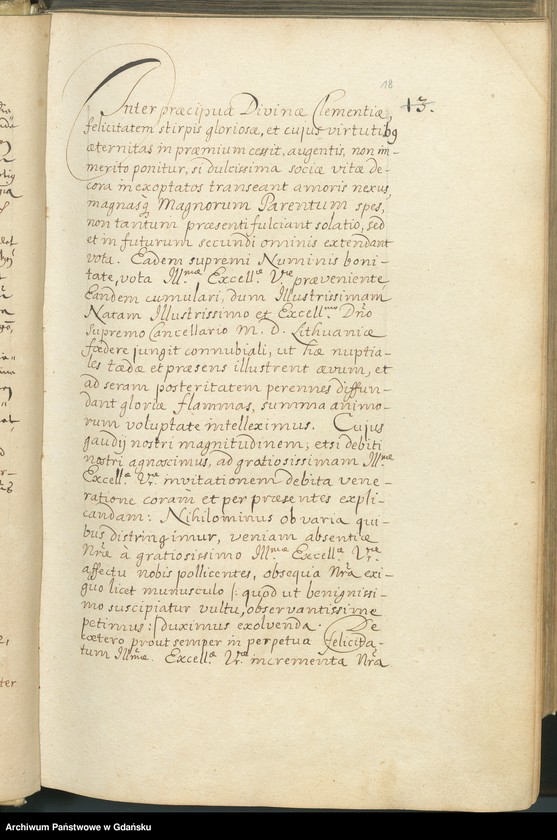 18
13.
Inter præcipua Divinæ Clementiæ,
felicitatem stirpis gloriosæ, et cujus virtutibꝯ
æternitas in præmium cessit, augentis, non im-
merito ponitur, si dulcissima sociæ vitæ de-
cora in exoptatos transeant amoris nexus,
magnasq́ Magnorum Parentum spes,
non tantum præsenti fulciant solatio, sed
et in futurum secundi ominis extendant
vota. Eadem supremi Numinis boni-
tate, vota Ill.mæ Excell.æ V.ræ præveniente,
Eandem cumulari, dum Illustrissimam
Natam Illustrissimo et Excell.mo Dn̄o
Supremo Cancellario M. D. Lithuaniæ
fœdere jungit connubiali, ut hæ nuptia-
les tædæ et præsens illustrent ævum, et
ad seram posteritatem perennes diffun-
dant gloriæ flammas, summa animo-
rum voluptate intelleximus. Cujus
gaudij nostri magnitudinem, etsi debiti
nostri agnoscimus, ad gratiosissimam Ill.mæ
Excell.æ V.ræ invitationem debita vene-
ratione coram et per præsentes expli-
candam: Nihilominus ob varia qui-
bus distringimur, veniam absentiæ
Nr̄æ à gratiosissimo Ill.mæ Excell.æ V.ræ
affectu nobis pollicentes, obsequia Nr̄a exi-
guo licet munusculo |: quod ut benignissi-
mo suscipiatur vultu, observantissime
petimus :| duximus exolvenda. De
cætero prout semper in perpetua felicita-
tum Ill.mæ Excell.æ V.ræ incrementa Nr̄a
Archiwum Państwowe w Gdańsku